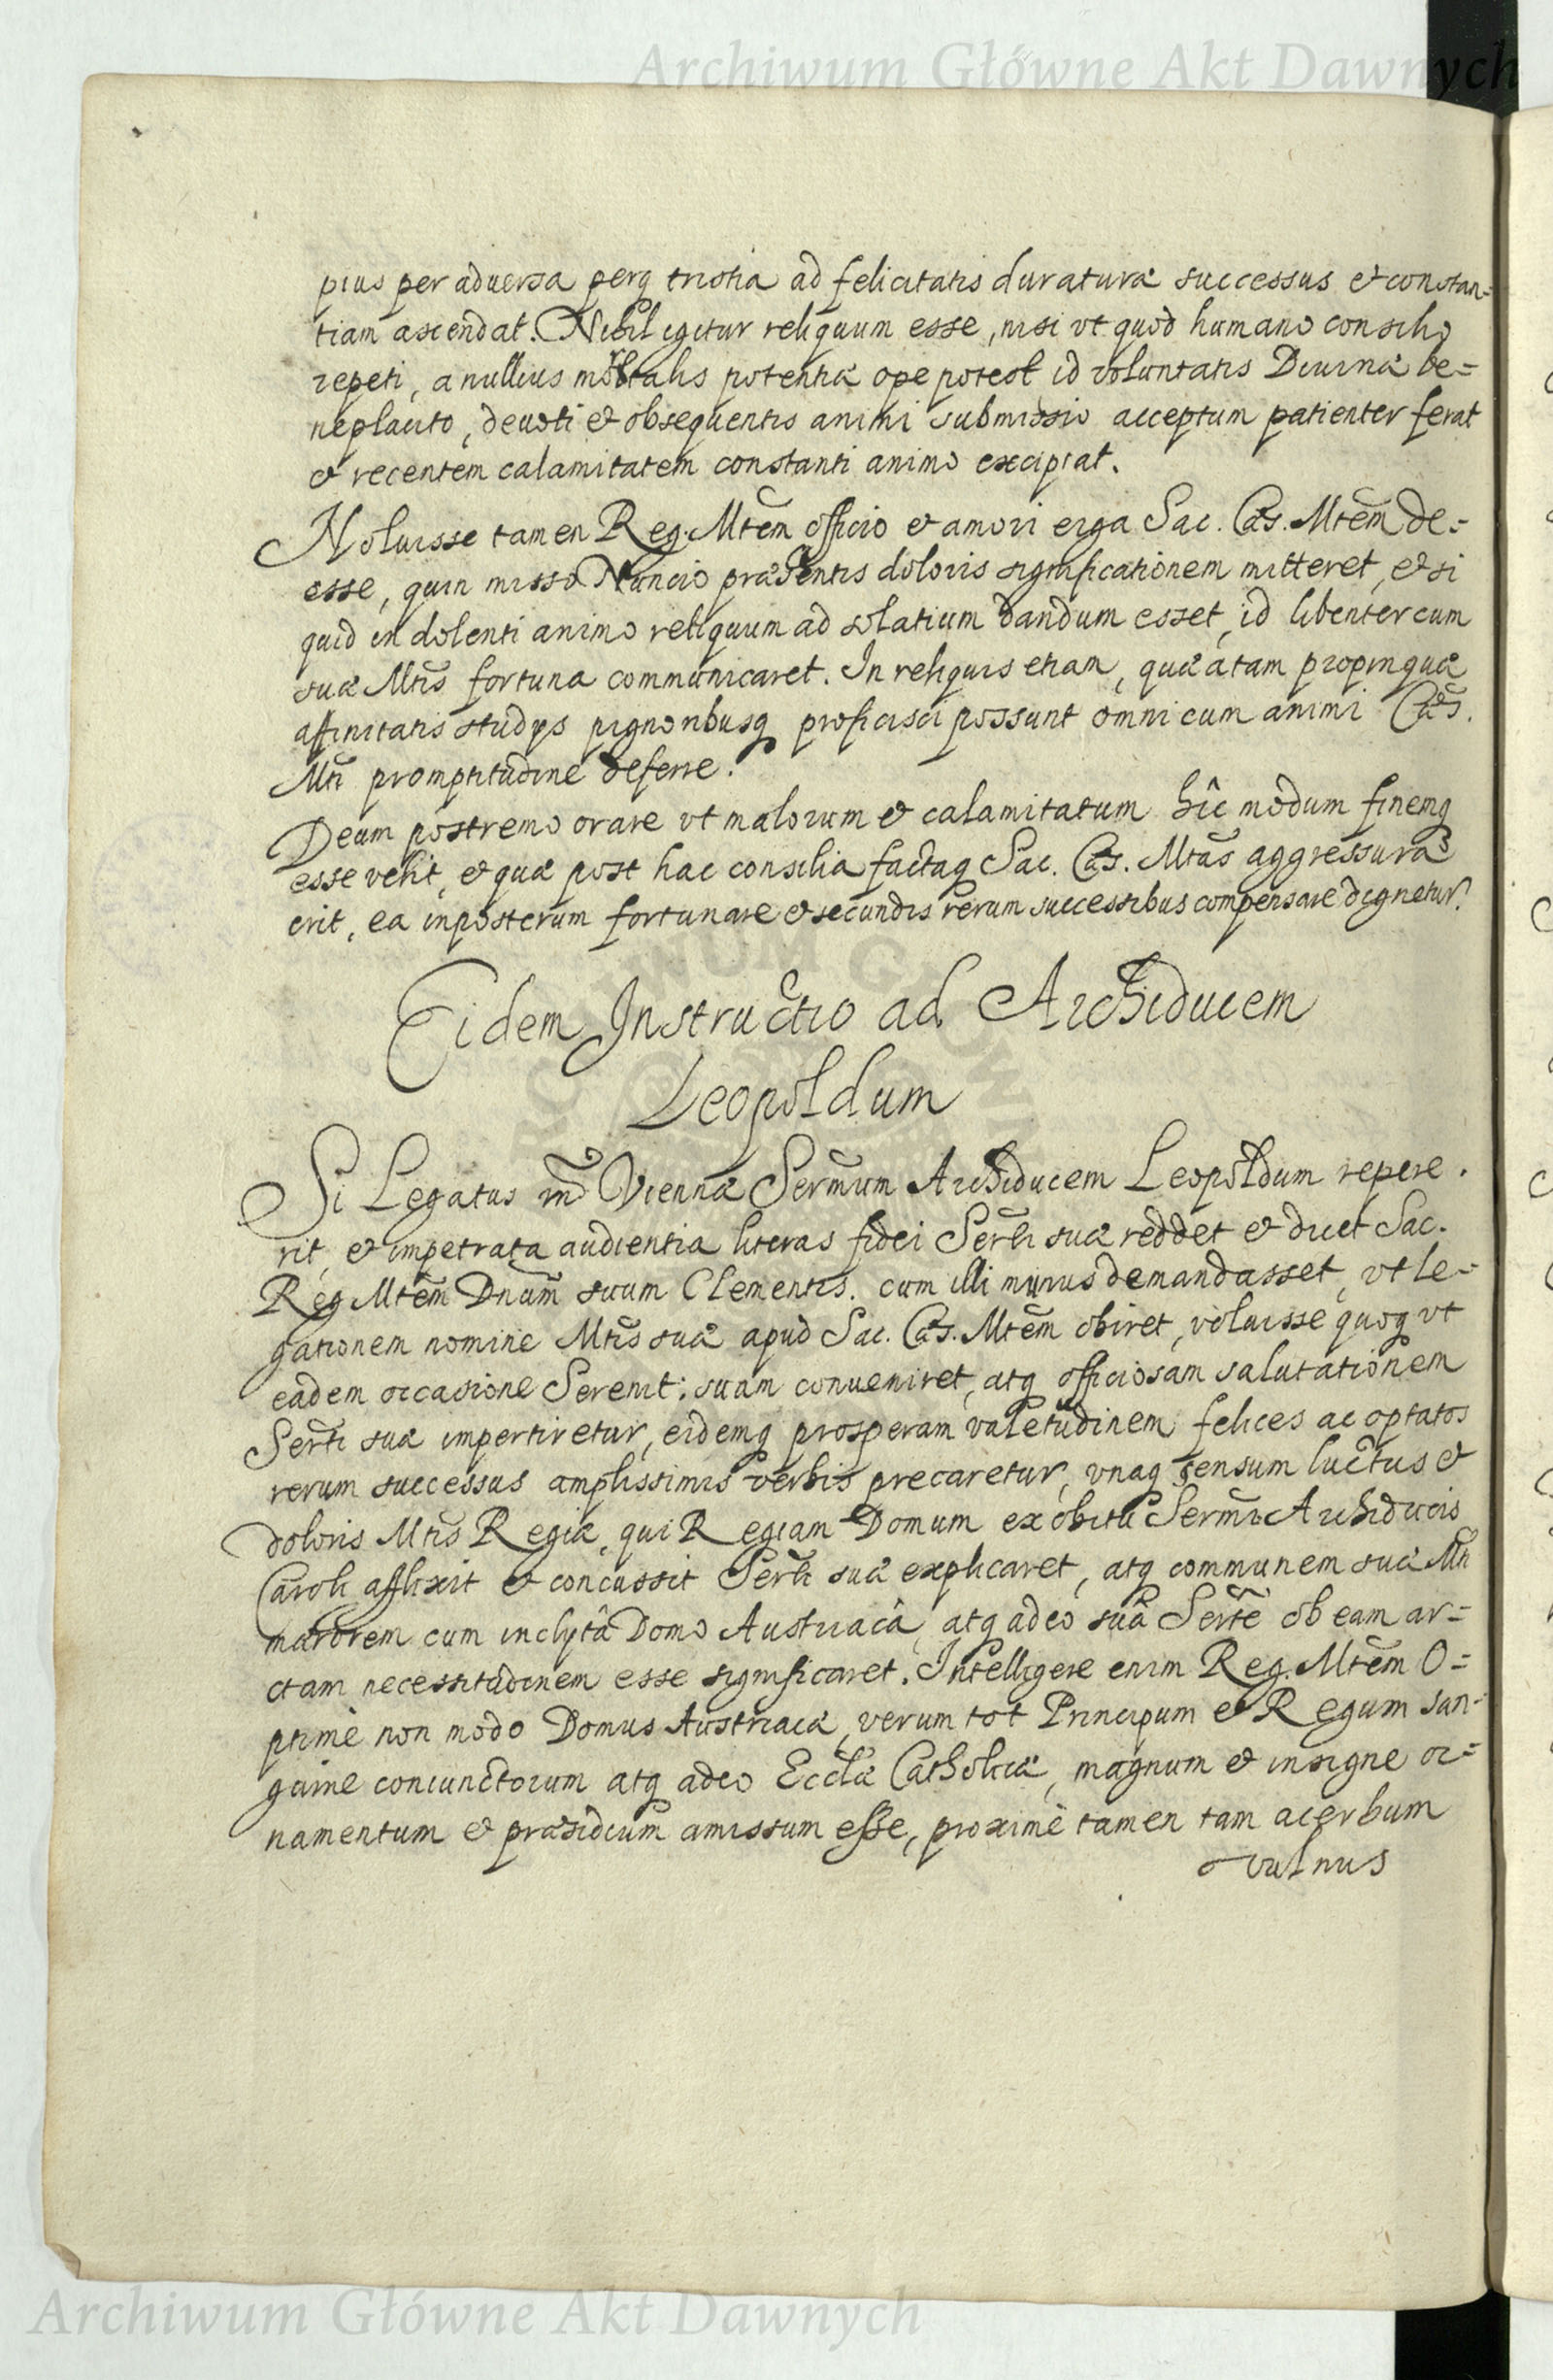 Archiwum Główne Akt Dawnych
pius per aduersa perq tristia ad felicitatis duraturæ successus et constan=
tiam ascendat. Nihil igitur reliquum esse, nisi vt quod humano consilio
repeti, a nullius mortalis potentiæ ope potest id voluntatis Diuinæ be=
neplacito, deuoti et obsequentis animi submissio acceptum patienter ferat
et recentem calamitatem constanti animo excipiat.
Noluisse tamen Reg. Mtem officio et amori erga Sac. Cæs. Mtem de=
esse, quin misso Nuncio præsentis doloris significationem mitteret, et si
quid in dolenti animo reliquum ad solatium dandum esset, id libenter cum
suæ Mtis fortuna communicaret. In reliquis etiam, quæ a tam propinquæ
affinitatis studys pignoribusq proficisci possunt omni cum animi Cæs.
Mti promptitudine deferre.
Deum postremo orare vt malorum et calamitatum hic modum finemq
esse velit, et quæ post hac consilia factaq Sac. Cæs. Mtas aggressura
erit, ea inposterum fortunare et secundis rerum successibus compensare dignetur.
Eidem Instructio ad Archiducem
Leopoldum
Si Legatus Viennæ Sermum Archiducem Leopoldum repere.
rit, et impetrata audientia literas fidei Serti suæ reddet et dicet Sac.
Reg Mtem Dnum suum Clementis. cum illi munus demandasset, vt le=
gationem nomine Mtis suæ apud Sac. Cæs. Mtem obiret, voluisse quoq vt
eadem occasione Serenit: suam conueniret, atq officiosam salutationem
Serti suæ impertiretur, eidemq prosperam valetudinem felices ac optatos
rerum successus amplissimis verbis precaretur, vnaq sensum luctus et
doloris Mtis Regiæ, qui Regiam Domum ex obitu Sermi Archiducis
Caroli afflixit et concussit Serti suæ explicaret, atq communem suæ Mti
mærorem cum inclytâ Domo Austriacâ, atq adeo suâ Serte ob eam ar=
ctam necessitudinem esse significaret. Intelligere enim Reg. Mtem O=
ptimè non modo Domus Austriacæ, verum tot Principum et Regum san=
guine coniunctorum atq adeo Ecclæ Catholicæ, magnum et insigne or=
namentum et præsidium amissum esse, proximè tamen tam acerbum
vulnus
Archiwum Główne Akt Dawnych